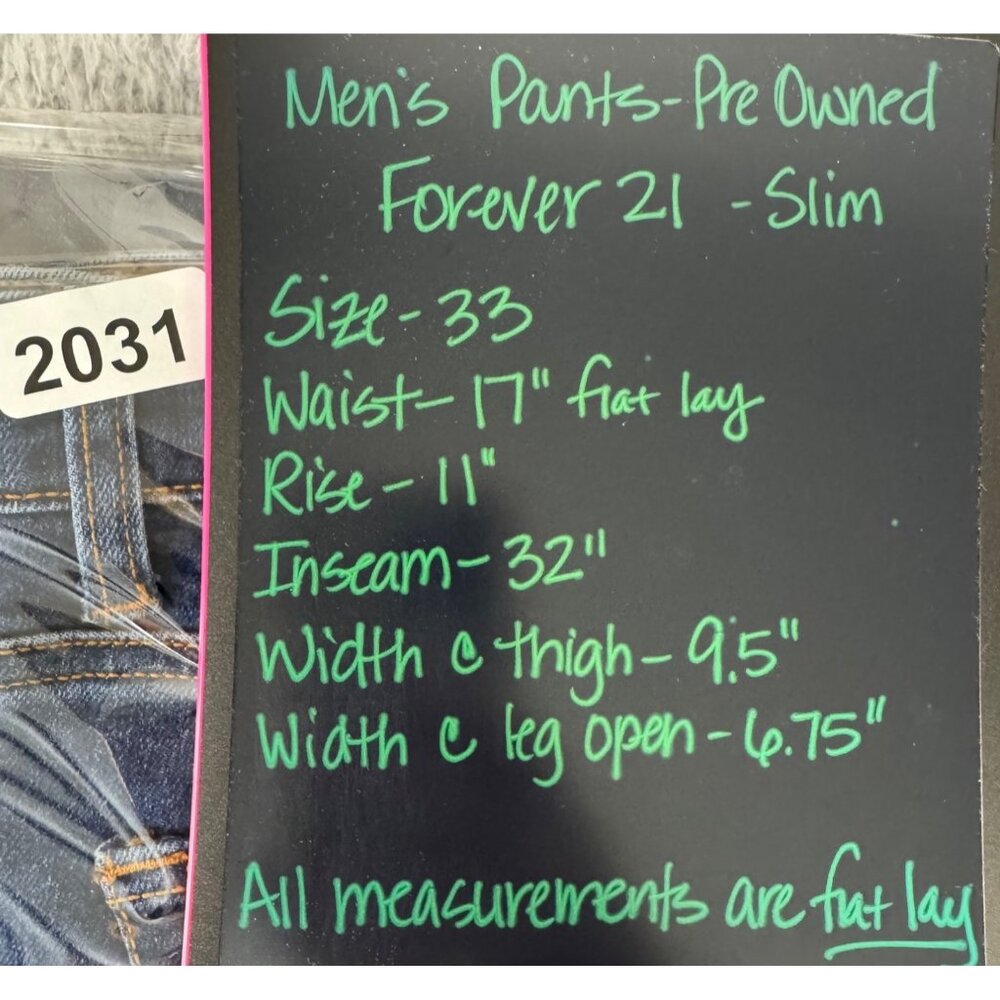 Men's Pants-Pre Owned
Forever 21 - Slim
2031
Size - 33
Waist - 17" flat lay
Rise - 11"
Inseam - 32"
Width @ thigh - 9.5"
Width @ leg open - 6.75"
All measurements are flat lay